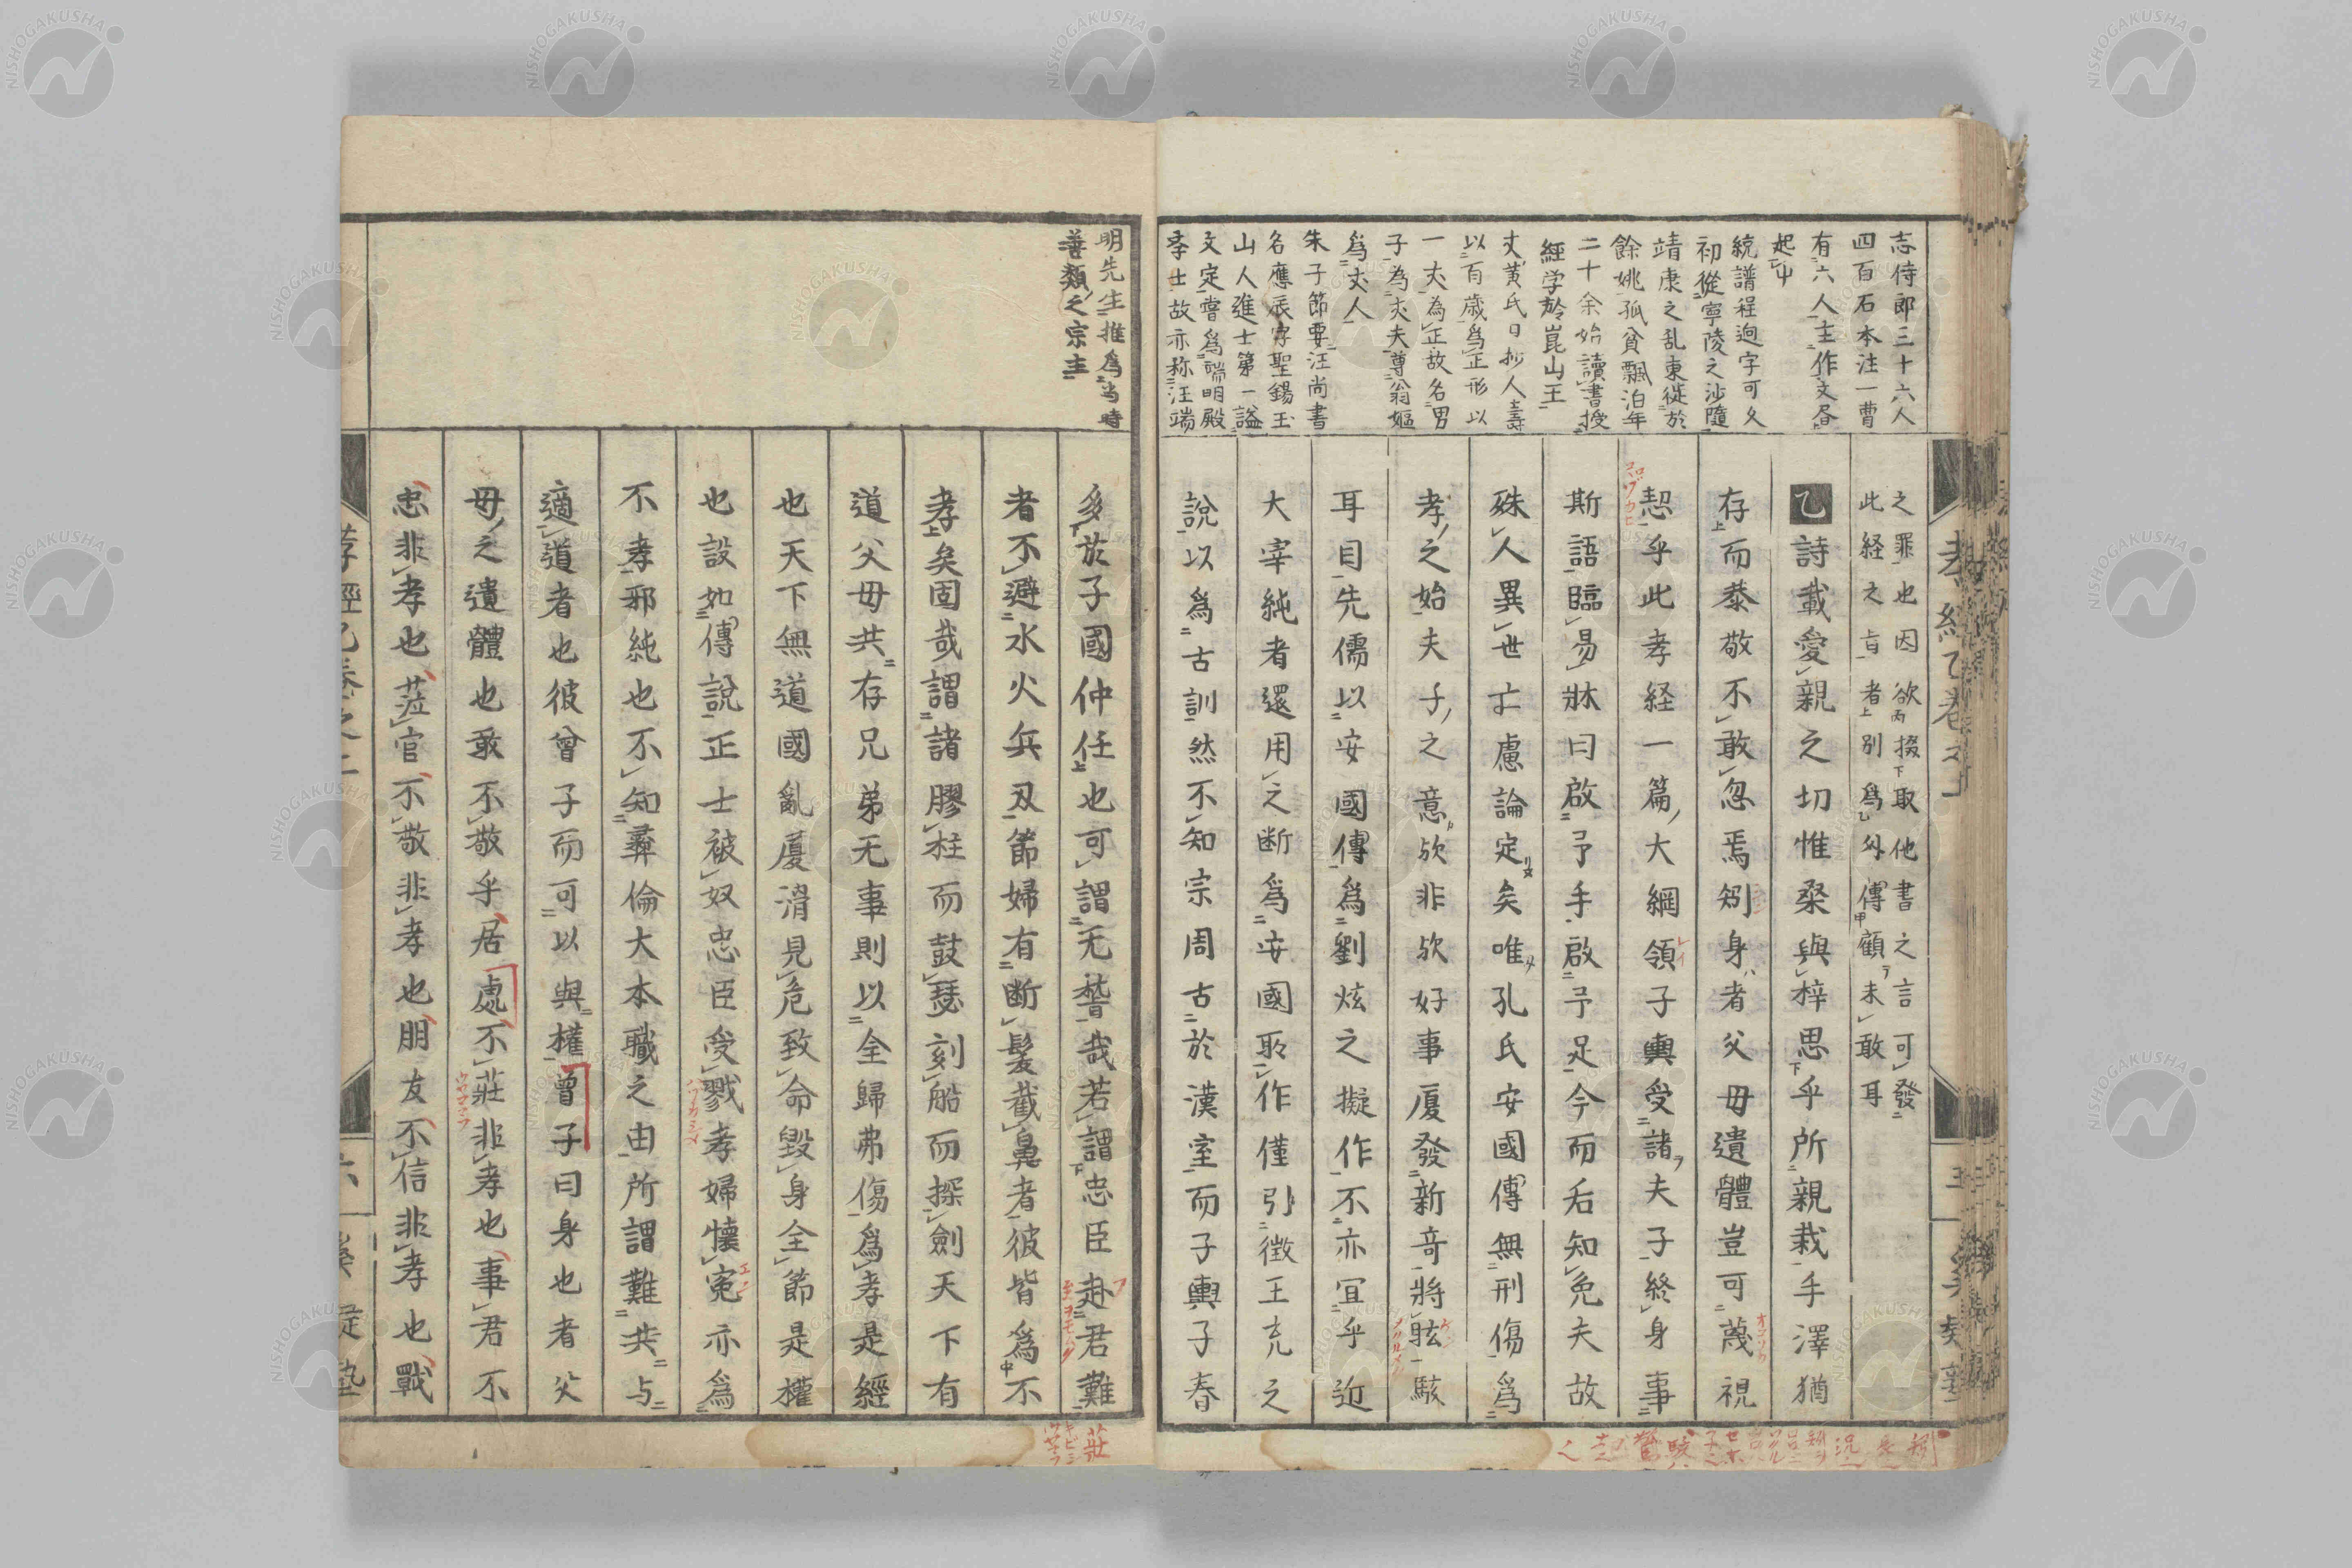 志侍郎三十六人
四百石本注一曹
有六人主作文各
起中
統譜程迥字可久
初從寧陵之沙隨
靖康之乱東徙於
餘姚孤貧飄泊年
二十余始讀書授
經学於崑山王
丈黄氏日抄人壽
以百歲爲正形以
一丈為正故名男
子為丈夫尊翁嫗
爲丈人
朱子節要汪尚書
名應辰字聖錫玉
山人進士第一謚
文定嘗爲端明殿
孝士故亦称汪端
之罪也因欲掇取他書之言可發
此経之旨者別爲外傳顧未敢耳
乙詩載愛親之切惟桑與梓思乎所親栽手澤猶
存而恭敬不敢忽焉矧身者父母遺體豈可蔑視
恝乎此孝経一篇大綱領子輿受諸夫子終身事
斯語臨易牀曰啟予手啟予足今而后知免夫故
殊人異世亡慮論定矣唯孔氏安國傳無刑傷爲
孝之始夫子之意欤非欤好事厦發新奇將眩駭
耳目先儒以安國傳爲劉炫之擬作不亦宜乎近
大宰純者還用之断爲安國取作僅引徴王充之
說以爲古訓然不知宗周古於漢室而子輿子春
孝経乙巻之一
五
明先生推爲当時
善類之宗主
多於子國仲任也可謂无嗸哉若謂忠臣赴君難
者不避水火兵刄節婦有断髪截鼻者彼皆爲不
孝矣固哉謂諸膠柱而鼓瑟刻船而探劍天下有
道父母共存兄弟无事則以全歸弗傷爲孝是經
也天下無道國亂厦滑見危致命毀身全節是權
也設如傳說正士被奴忠臣受戮孝婦懐寃亦爲
不孝邪純也不知彝倫大本職之由所謂難共与
適道者也彼曾子而可以與權曽子曰身也者父
母之遺體也敢不敬乎居處不莊非孝也事君不
忠非孝也莅官不敬非孝也朋友不信非孝也戰
孝經乙巻之一
六